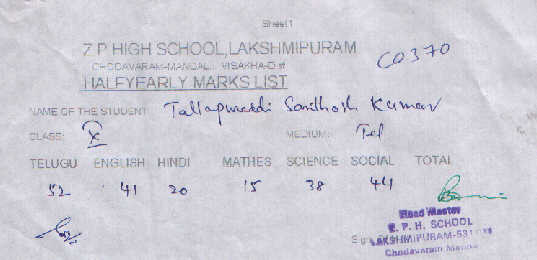 Sheet1
Z P HIGH SCHOOL,LAKSHMIPURAM
CO370
CHODAVARAM-MANDAL.. VISAKHA-Dist
HALFYEARLY MARKS LIST
NAME OF THE STUDENT: Santhosh Kumar
CLASS: X MEDIUM: Tel
TELUGU ENGLISH HINDI MATHES SCIENCE SOCIAL TOTAL
52 41 20 15 38 44
Head Master
Z. P. H. SCHOOL
LAKSHMIPURAM-531
Chodavaram Mandal